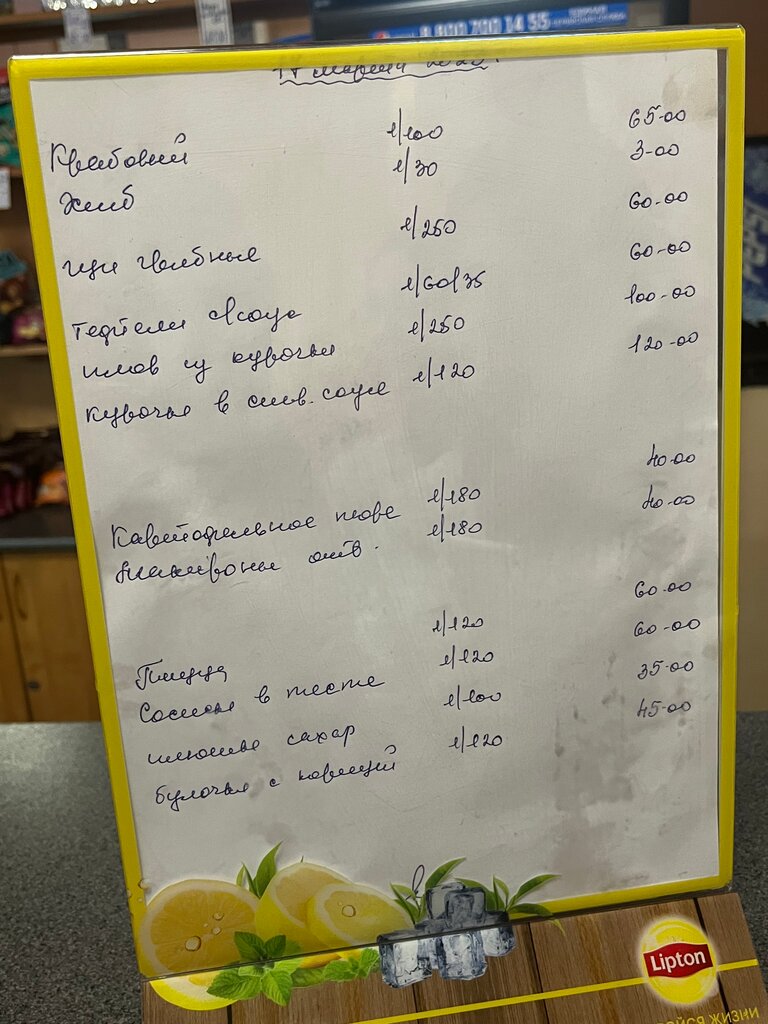 8 800 700 14 55
17 марта 2025г
Крабовый 1/100 65-00
Хлеб 1/30 3-00
Щи хлебные 1/250 60-00
Тефтели в соусе 1/60/35 60-00
Плов из курочки 1/250 100-00
Курочка в слив. соусе 1/120 120-00
Картофельное пюре 1/180 40-00
Макароны отв. 1/180 40-00
Пицца 1/120 60-00
Сосиска в тесте 1/120 60-00
Плюшка сахар 1/100 35-00
Булочка с корицей 1/120 45-00
Lipton
ЙСЯ ЖИЗНИ